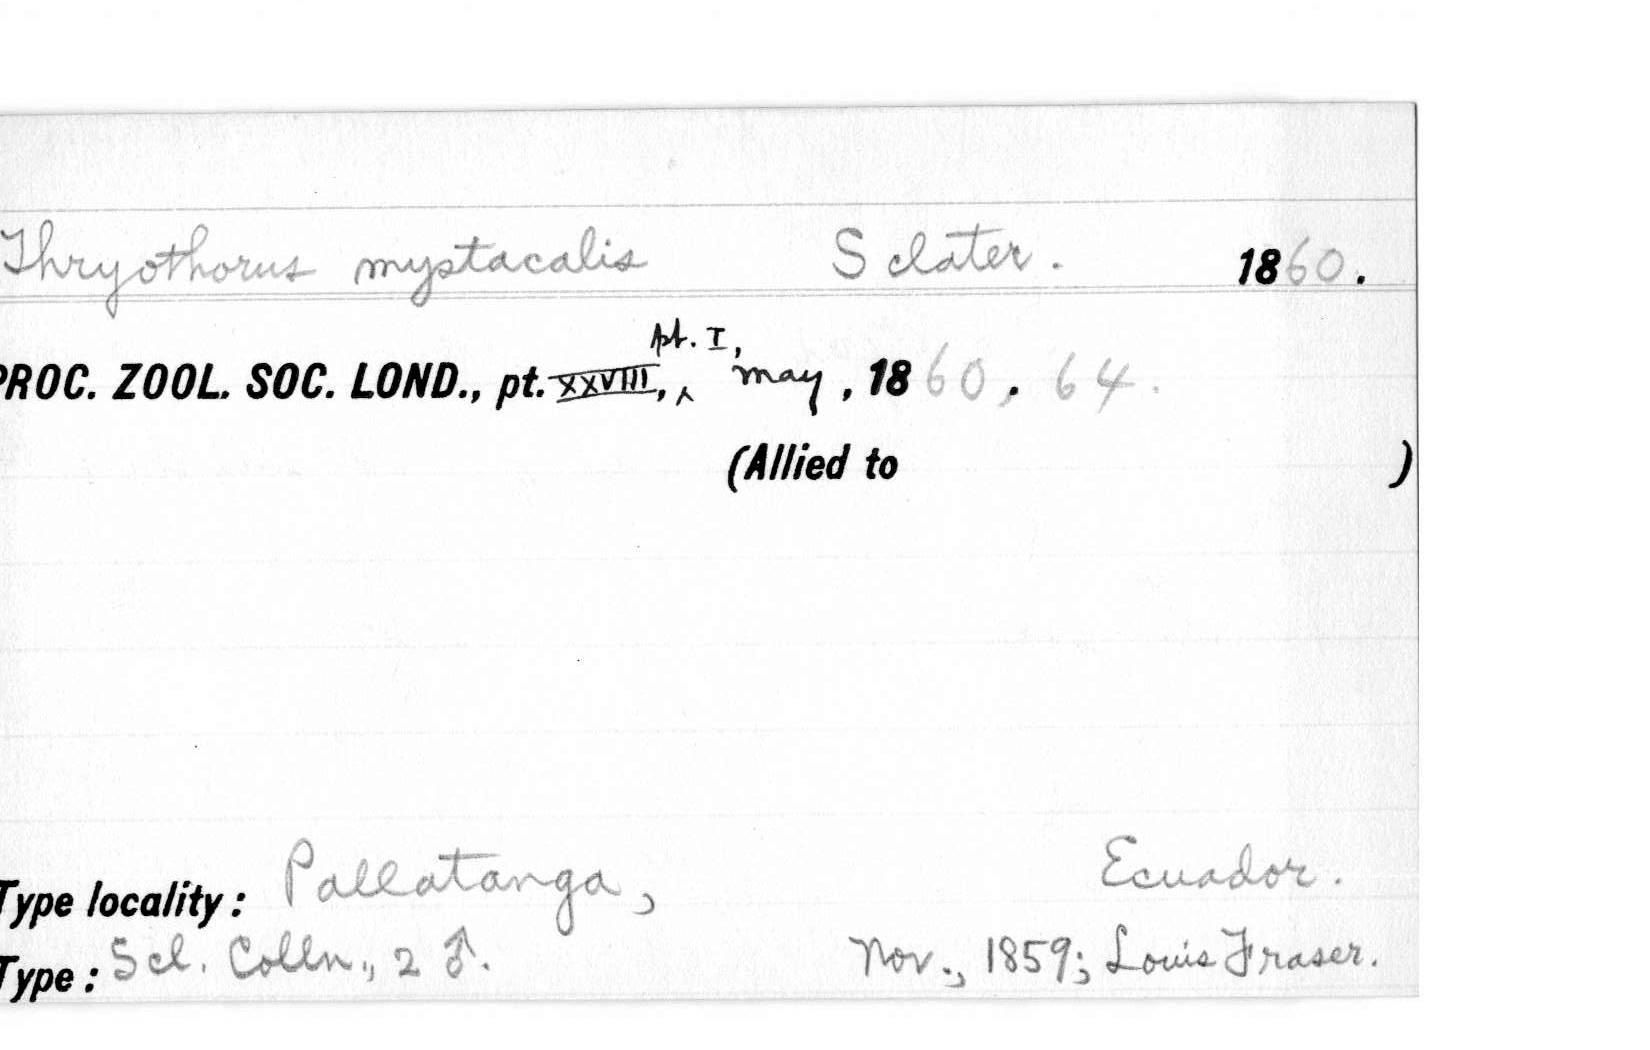 Thryothorus mystacalis Sclater. 1860.
PROC. ZOOL. SOC. LOND., pt. XXVIII, ^ pt. I, May, 1860, . 64.
(Allied to )
Type locality: Pallatanga, Ecuador.
Type: Scl. Colln., 2 ♂. Nov., 1859; Louis Fraser.